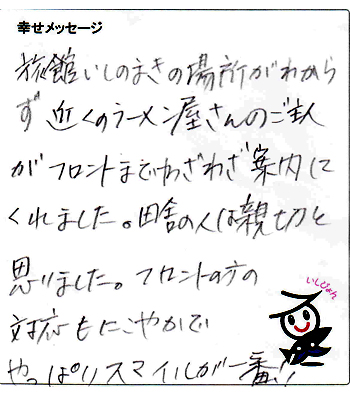 幸せメッセージ
旅館いしのまきの場所がわから
ず近くのラーメン屋さんのご主人
がフロントまでわざわざ案内して
くれました。田舎の人は親切と
思いました。フロントの方の
対応もにこやかで
やっぱりスマイルが一番!!
いしぴょん